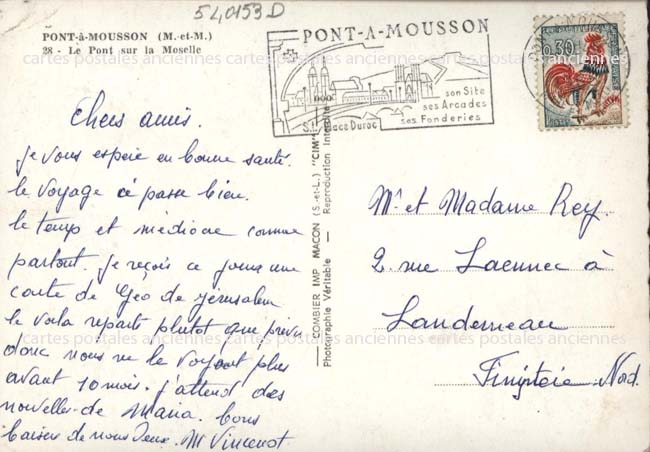 54,0153 D
PONT-à-MOUSSON (M.-et-M.)
28 - Le Pont sur la Moselle
PONT-A-MOUSSON
son Site
ses Arcades
ses Fonderies
S.I. Place Duroc
0,30
cartes postales anciennes cartes postales anciennes cartes postales anciennes
Chers amis.
je vous espère en bonne santé.
le voyage cé passe bien.
le temps et médiocre comme
partout. je reçois ce jour une
carte de Géo de jérusalem
le voila reparti plutot que prévu
donc nous ne le voyant plus
avant 10 mois. j'attend des
nouvelles de Maria. bons
baiser de nous Deux. M Vincenot
COMBIER IMP MACON (S.-et-L.) "CIM"
Photographie Véritable — Reproduction Interdite
Mr et Madame Rey.
2 rue Laennec à
Landerneau
Finistère Nord.
cartes postales anciennes cartes postales anciennes cartes postales anciennes